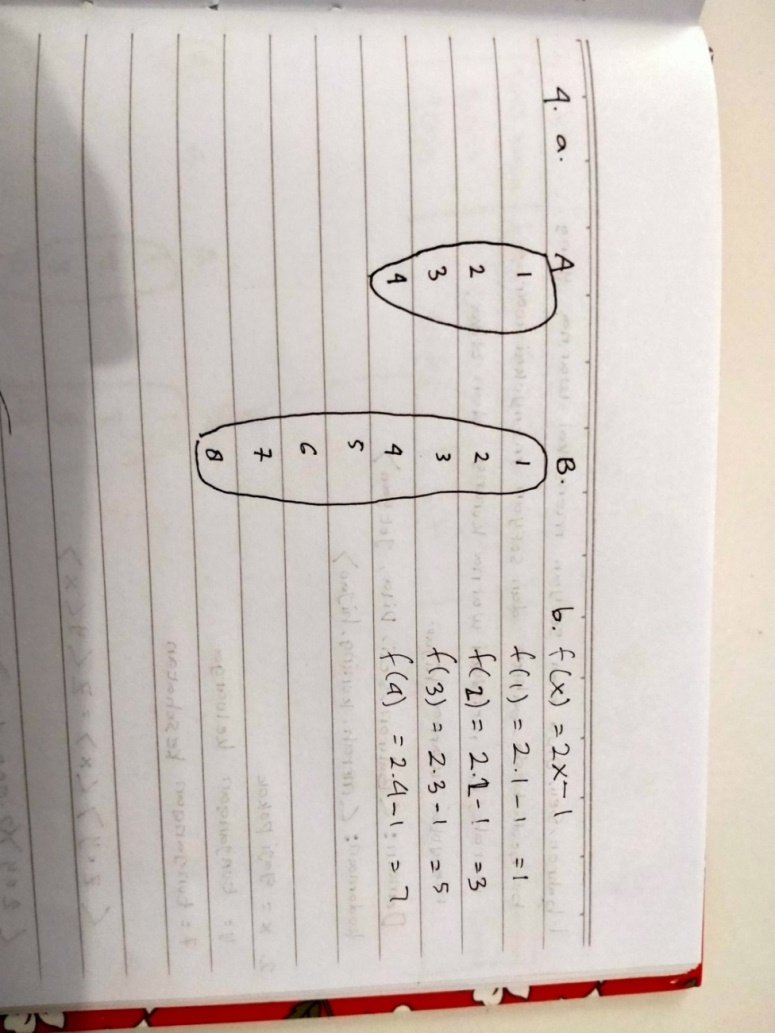 4. a.
A
1
2
3
4
B.
1
2
3
4
5
6
7
8
b. f(x) = 2x-1
f(1) = 2.1-1 = 1
f(2) = 2.2-1 = 3
f(3) = 2.3-1 = 5
f(4) = 2.4-1 = 7